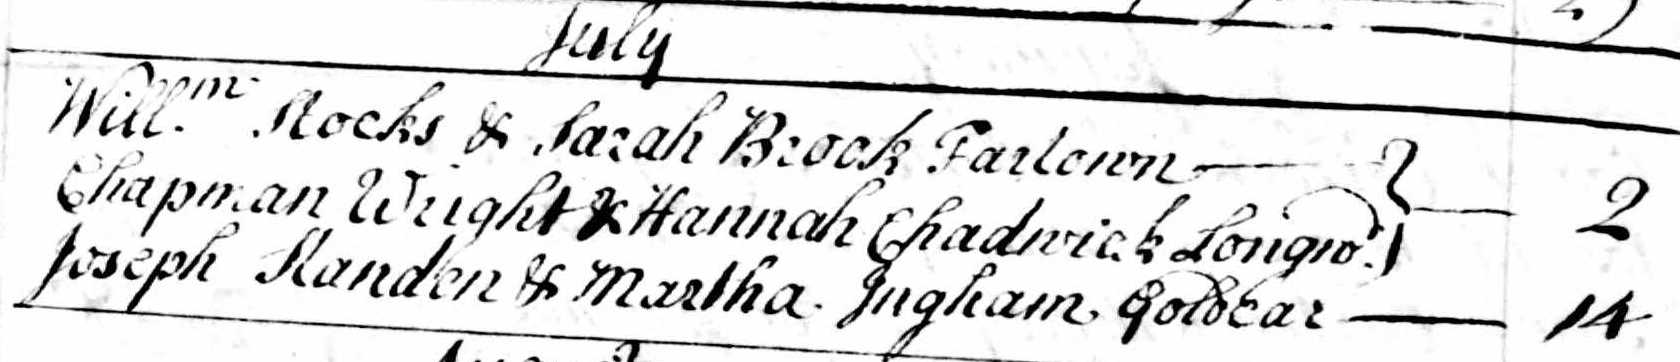 July
Will.m Stocks & Sarah Brook Fartown — } 2
Chapman Wright & Hannah Chadwick Longwd. }
Joseph Standen & Martha Ingham Golcar — 14